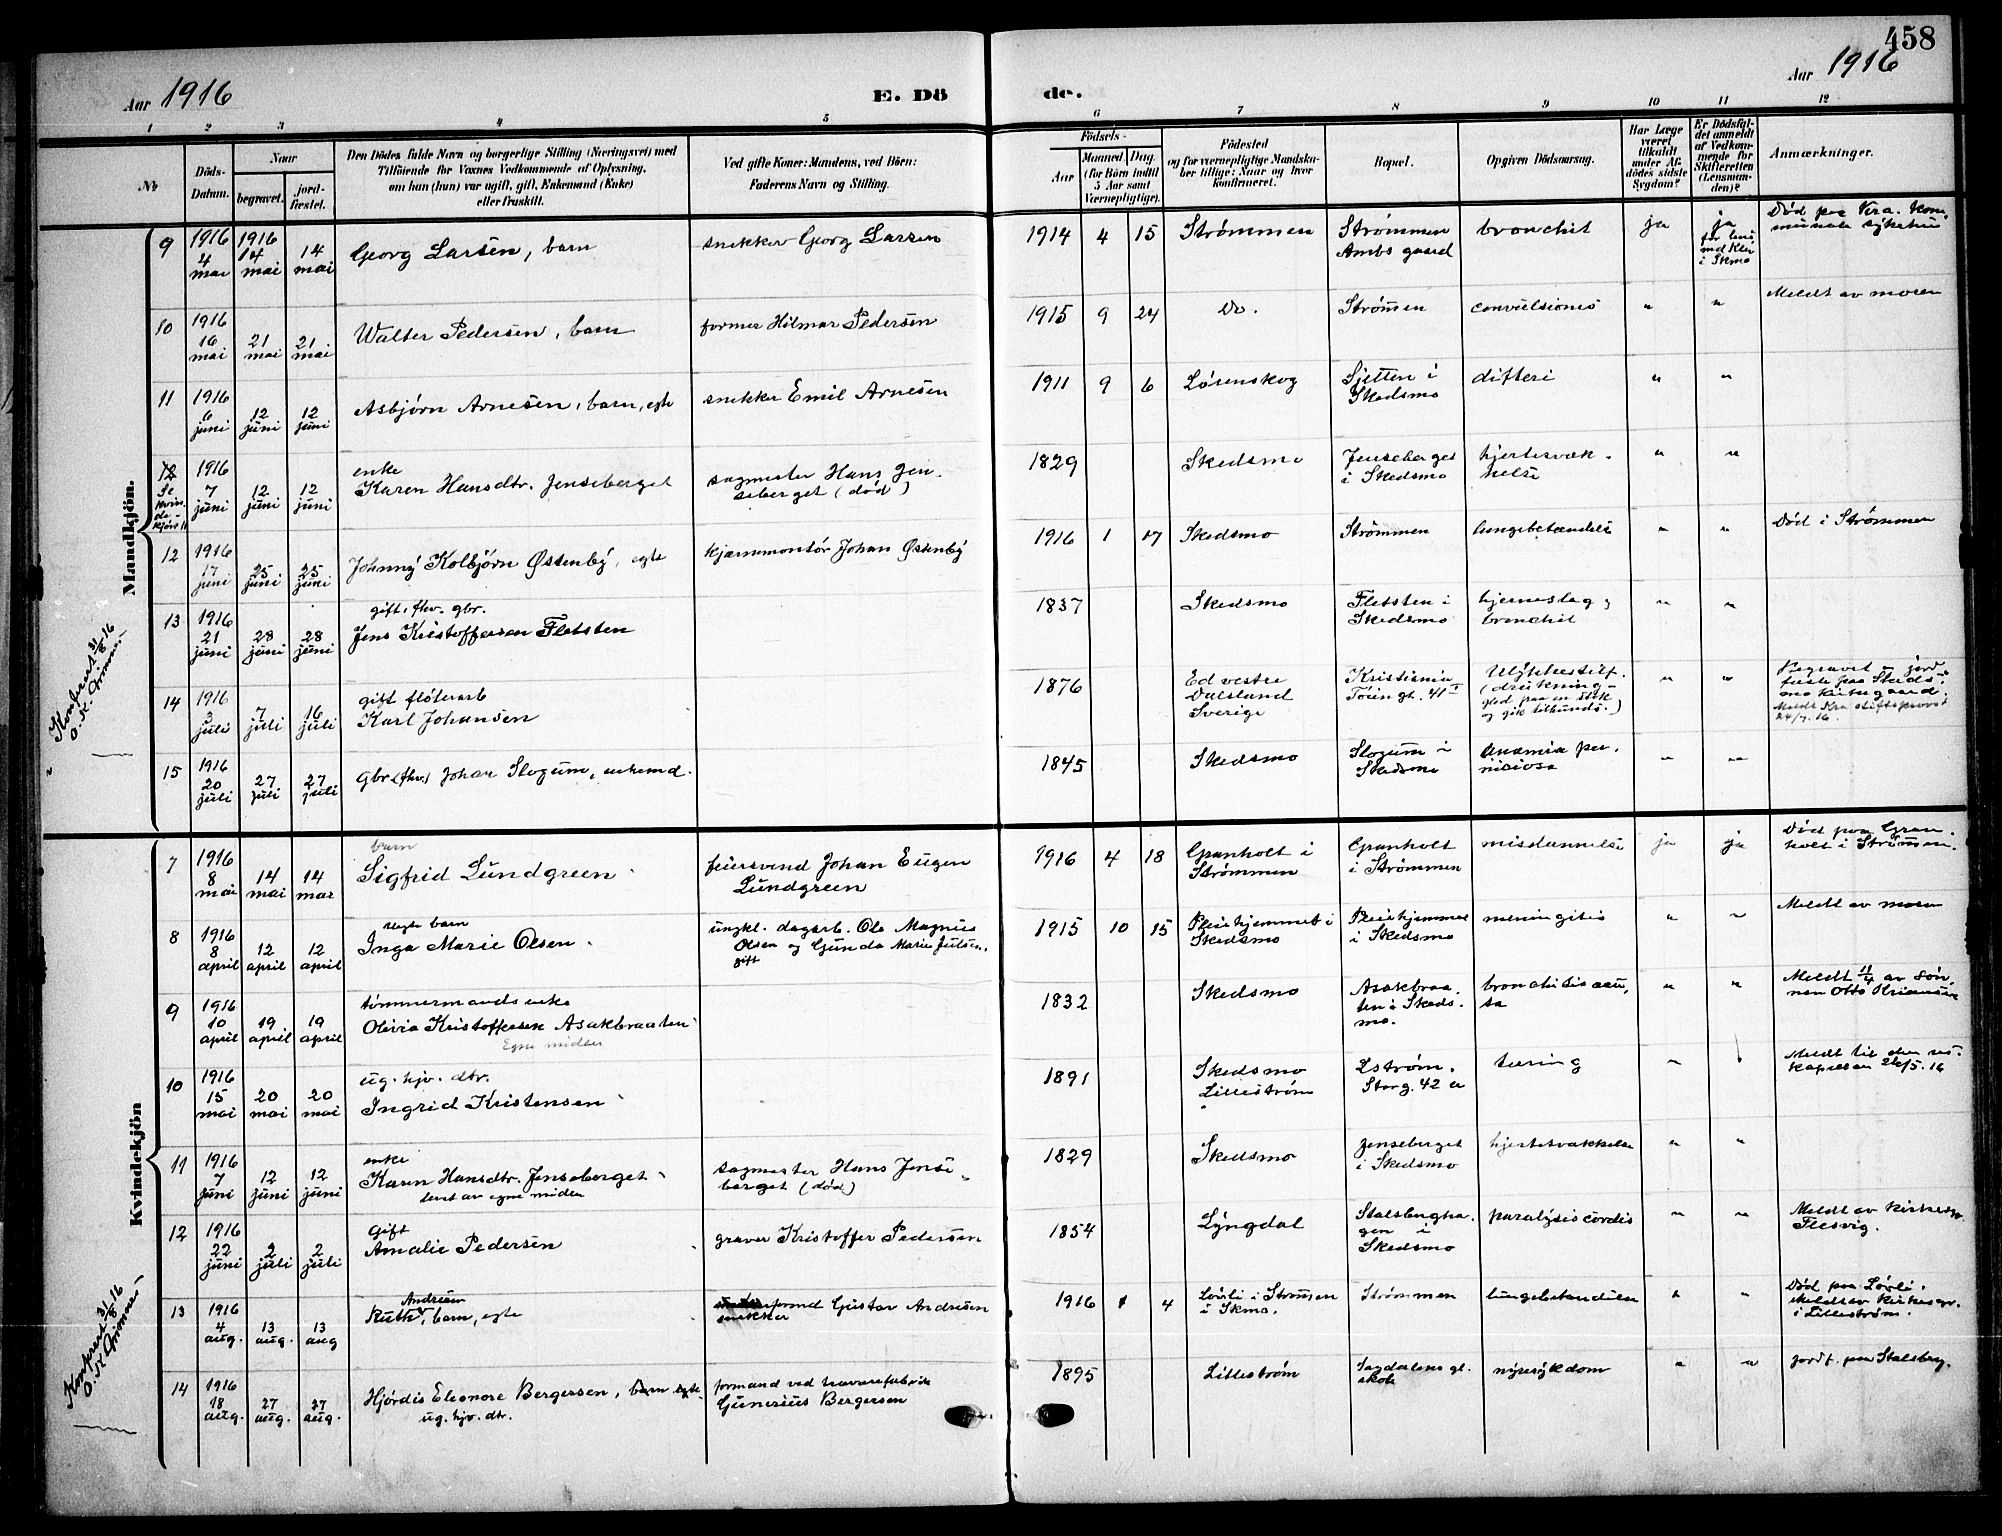 458
Aar 1916
E. Dö
de.
Aar 1916
1 2 3 4 5 6 7 8 9 10 11 12
No
Döds-Datum.
Naar
begravet.
jord-fæstet.
Den Dödes fulde Navn og borgerlige Stilling (Næringsvei) med
Tilföiende for Voxnes Vedkommende af Oplysning,
om han (hun) var ugift, gift, Enkemand (Enke)
eller fraskilt.
Ved gifte Koner: Mandens, ved Börn:
Faderens Navn og Stilling.
Födsels-
Aar
Maaned Dag.
(for Börn indtil
5 Aar samt
Værnepligtige).
Födested
og for værnepligtige Mandska-
ber tillige: Naar og hvor
konfirmeret.
Bopæl.
Opgiven Dödsaarsag.
Har Læge
været
tilkaldt
under Af-
dödes sidste
Sygdom?
Er Dödsfal-
det anmeldt
af Vedkom-
mende for
Skifteretten
(Lensman-
den)?
Anmærkninger.
Mandkjön.
9 1916 4 mai 1916 14 mai 14 mai Georg Larsen, barn snekker Georg Larsen 1914 4 15 Strømmen Strømmen bronchit ja ja Død paa Kra. kom-
munale sykehus
10 1916 16 mai 21 mai 21 mai Walter Pedersen, barn former Hilmar Pedersen 1915 9 24 Do. Strømen convulsiones " " Meldt av moren
11 1916 6 juni 12 juni 12 juni Asbjørn Arnesen, barn, egte snekker Emil Arnesen 1911 9 6 Lørenskog Sjetten i Skedsmo difteri " "
12 Se kvin-de-kjøn 11 1916 7 juni 12 juni 12 juni enke
Karen Hansdtr. Jenseberget sagmester Hans Jen-
seberget (død) 1829 Skedsmo Jenseberget
i Skedsmo hjertesvæk-
kelse " "
12 1916 17 juni 25 juni 25 juni Johnny Kolbjørn Østenby, egte kjernemontör Johan Østenby 1916 1 17 Skedsmo Strømmen lungebetændelse " " Død i Strømmen
13 1916 21 juni 28 juni 28 juni gift, fhv. gbr.
Jens Kristoffersen Fletsten 1837 Skedsmo Fletsten i
Skedsmo hjerneslag og
bronchit " "
14 1916 3 juli 7 juli 16 juli gift fløterarb
Karl Johansen 1876 Ed vestre
Dalsland
Sverige Kristiania
Töieng t. 41 I Ulykkestilf.
(drukning -
gled paa en stok
og gik tilbunds.) " " Begravet og jord-
fæste paa Skeds-
mo kirkegaard.
Meldt Kra stiftsprovst
24/7. 16.
15 1916 20 juli 27 juli 27 juli gbr. (fhv.) Johan Slogum, enkemd. 1845 Skedsmo Slogum i
Skedsmo Anæmia per-
niciosa " "
Konferert 31/8 16
O. K. Grimnes
Kvindekjön
7 1916 8 mai 14 mai 14 mai barn
Sigfrid Lundgreen feiersvend Johan Eugen
Lundgreen 1916 4 18 Granholt i
Strømmen Granholt
i Strømmen misdannelse ja ja Død paa Gran-
holt i Strømen.
8 1916 8 april 12 april 12 april uegte barn
Inga Marie Olsen ungkl. dagarb. Ole Magnus
Olsen og Gunda Marie Julsen,
gift 1915 10 15 Pleiehjemmet i
Skedsmo Pleiehjemmet
i Skedsmo meningitis " " Meldt av moren
9 1916 10 april 19 april 19 april tømmermands enke
Olivia Kristoffersen Asakbraaten
Egne midler 1832 Skedsmo Asakbraa-
ten i Skeds-
mo. bronchitis acu-
ta " " Meldt 11/4 av søn-
nen Otto
10 1916 15 mai 20 mai 20 mai ug. hjv. dtr.
Ingrid Kristensen 1891 Skedsmo
Lillestrøm Lstrøm.
Storg. 42 a tæring " Meldt til den res.
kapellan 26/5. 16
11 1916 7 juni 12 juni 12 juni enke
Karen Hansdtr. Jenseberget
levet av egne midler sagmester Hans Jense
berget (død) 1829 Skedsmo Jenseberget
i Skedsmo hjertesvækkelse " "
12 1916 22 juni 2 juli 2 juli gift
Amalie Pedersen graver Kristoffer Pedersen 1854 Lyngdal Stalsbergha-
gen i
Skedsmo paralysis cordis " " Meldt av kirkesgr.
Flesvig.
13 1916 4 aug. 13 aug. 13 aug Andrisen
Ruth, barn, egte formand Gustav Andrisen
snekker 1916 4 Løvli i Strømen
i Skmo. Strømmen lungebetændelse " " Død paa Løvli.
Meldt av kirkesgr.
i Lillestrøm.
14 1916 18 aug. 27 aug. 27 aug. Hjørdis Eleonore Bergersen, barn egte
ug. hjv. dtr. formand ved travarefabrik
Gunerius Bergersen 1895 Lillestrøm Sagdalens gl.
skole nyresykdom " " jordf. paa Stalsberg.
Konferert 31/8 16
O. K. Grimnes